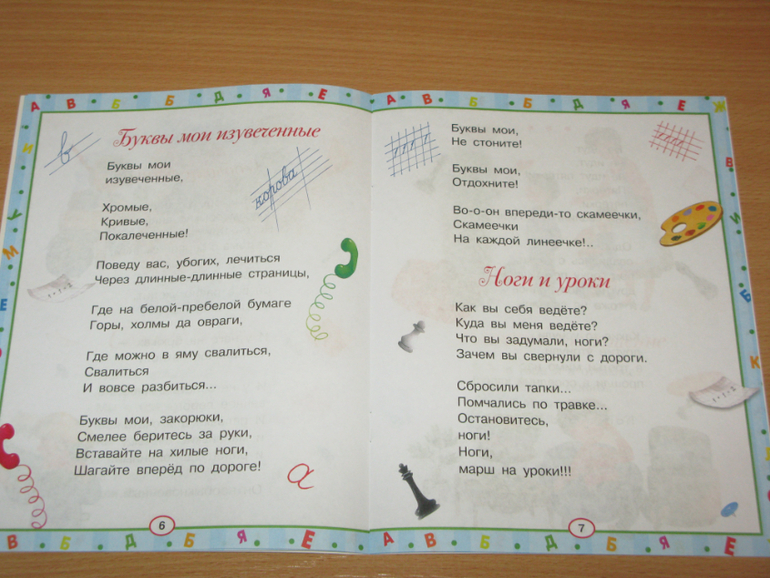 А В Б Б Д Я Е А В Б Б Д Я Е Ж
Буквы мои изувеченные
в
Буквы мои
изувеченные,
корова
Хромые,
Кривые,
Покалеченные!
Поведу вас, убогих, лечиться
Через длинные-длинные страницы,
Где на белой-пребелой бумаге
Горы, холмы да овраги,
Где можно в яму свалиться,
Свалиться
И вовсе разбиться...
Буквы мои, закорюки,
Смелее беритесь за руки,
Вставайте на хилые ноги,
Шагайте вперёд по дороге!
а
6
Буквы мои,
Не стоните!
Буквы мои,
Отдохните!
Во-о-он впереди-то скамеечки,
Скамеечки
На каждой линеечке!..
Ноги и уроки
Как вы себя ведёте?
Куда вы меня ведёте?
Что вы задумали, ноги?
Зачем вы свернули с дороги.
Сбросили тапки...
Помчались по травке...
Остановитесь,
ноги!
Ноги,
марш на уроки!!!
7
В Б Д Б Я Е А В Б Б Д Я Е